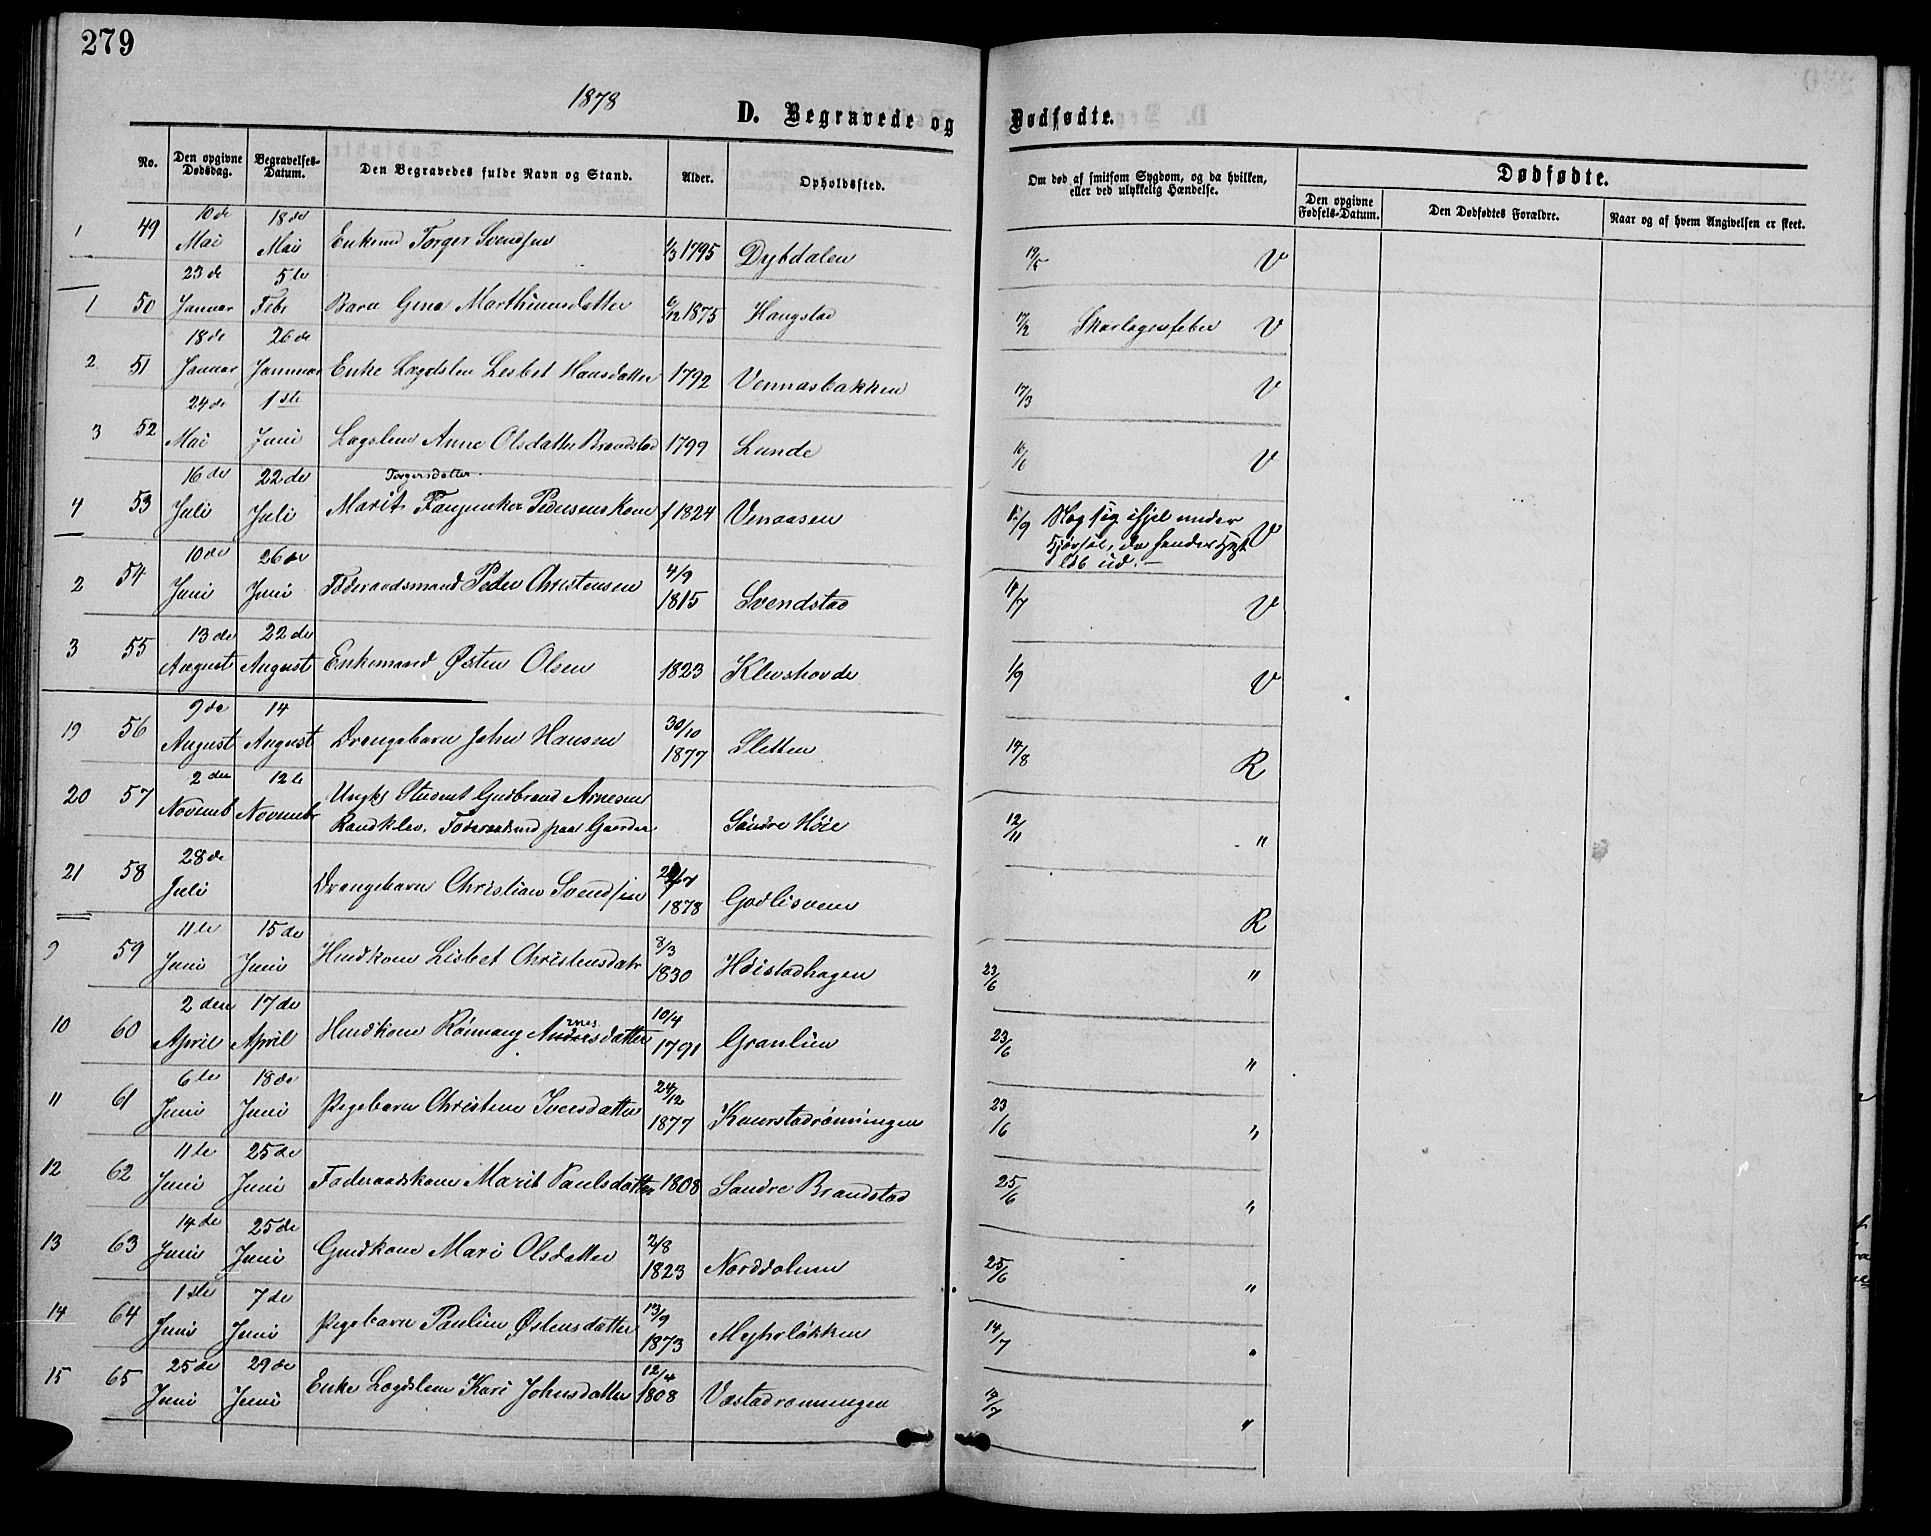 279
1878
D. Begravede og Dødfødte.
No. | Den opgivne Dødsdag. | Begravelses-Datum. | Den Begravedes fulde Navn og Stand. | Alder. | Opholdssted. | Om død af smitsom Sygdom, og da hvilken, eller ved ulykkelig Hændelse. | Dødfødte. | Den opgivne Fødsels-Datum. | Den Dødfødtes Forældre. | Naar og af hvem Angivelsen er skeet.
1 | 49 | 10de Mai | 18de Mai | Torger Svendsen | 1/3 1795 | Dybdalen | 19/5 | V
1 | 50 | 23de Januar | 5te Febr | Barn Gina Marthinusdatter | 6/12 1875 | Haugstad | 17/2 | Skarlagensfeber | V
2 | 51 | 18de Januar | 26de Januar | Enke Lægdslem Lisbet Hansdatter | 1792 | Vennasbakken | 17/3 | V
3 | 52 | 24de Mai | 1ste Juni | Lægslem Anne Olsdatter Brandstad | 1799 | Lunde | V
4 | 53 | 16de Juli | 22de Juli | Marit Torgersdatter Pedersens Kone | 1824 | Venaasen | /9 | Slog sig ihjel under Kjørsel, da hendes Hest løb ud. | V
2 | 54 | 10de Juni | 26de Juni | Føderaadsmand Peder Christensen | 4/9 1815 | Svendstad | 14/7 | V
3 | 55 | 13de August | 22de August | Enkemand Østen Olsen | 1823 | Klevshovde | 1/9 | V
19 | 56 | 9de August | 14 August | Drengebarn John Hansen | 30/10 1877 | Sletten | 14/8 | R
20 | 57 | 2den Novemb | 12te Novembr | Ungk. Student Gudbrand Arnesen Randklev, Føderaadsmd paa Gaarden | Søndre Høie | 12/11 | "
21 | 58 | 28de Juli | Drengebarn Christian Svendsen | /7 1878 | Godlisveen | R
9 | 59 | 11te Juni | 15de Juni | Husmkone Lisbet Christensdatr | 8/3 1830 | Høistadhagen | 23/6 | "
10 | 60 | 2den April | 17de April | Husmkone Rønnaug Arnesdatter | 10/4 1791 | Granlien | 23/6 | "
11 | 61 | 6te Juni | 18de Juni | Pigebarn Christine Iversdatter | 24/12 1877 | Kaurstadrønningen | 23/6 | "
12 | 62 | 11te Juni | 25de Juni | Føderaadskone Marit Paulsdatter | 1808 | Søndre Brandstad | 25/6 | "
13 | 63 | 14de Juni | 25de Juni | Gmdkone Mari Olsdatter | 2/8 1823 | Norddalenn | 25/6 | "
14 | 64 | 1ste Juni | 7de Juni | Pigebarn Pauline Østensdatter | 13/9 1873 | Myhrløkken | 14/7 | "
15 | 65 | 25de Juni | 29de Juni | Enke Lægdslem Kari Johnsdatter | 12/4 1808 | Vastadrønningen | 19/7 | "